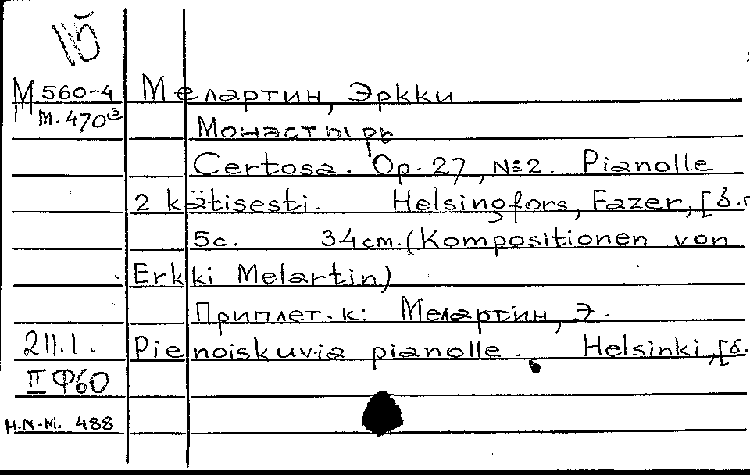 M 560-4 Мелартин, Эркки
м. 470³
Монастырь
Certosa. Op. 27, №2. Pianolle
2 kätisesti. Helsingfors, Fazer, [б.
5с. 34см. (Kompositionen von
Erkki Melartin)
Приплет. к: Мелартин, Э.
211.1. Pienoiskuvia pianolle. Helsinki, [б.
II Ф60
Н.N-М. 488